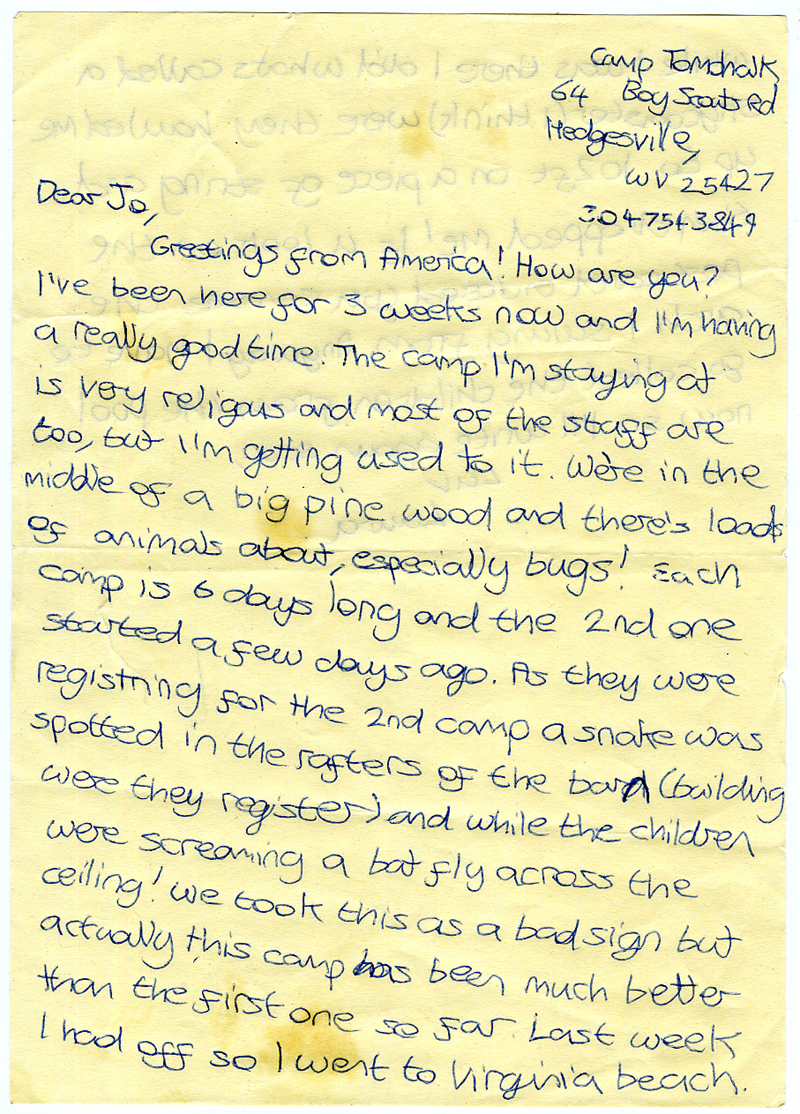 Camp Tomahalk
64 Boy Scouts Rd
Hedgesville,
WV 25427
3047543849
Dear Jo,
Greetings from America! How are you?
I've been here for 3 weeks now and I'm having
a really good time. The camp I'm staying at
is very religous and most of the staff are
too, but I'm getting used to it. We're in the
middle of a big pine wood and there's loads
of animals about, especially bugs! Each
camp is 6 days long and the 2nd one
started a few days ago. As they were
registring for the 2nd camp a snake was
spotted in the rafters of the barn (building
were they register) and while the children
were screaming a bat fly across the
ceiling! we took this as a bad sign but
actually this camp has been much better
than the first one so far. Last week
I had off so I went to Virginia beach.